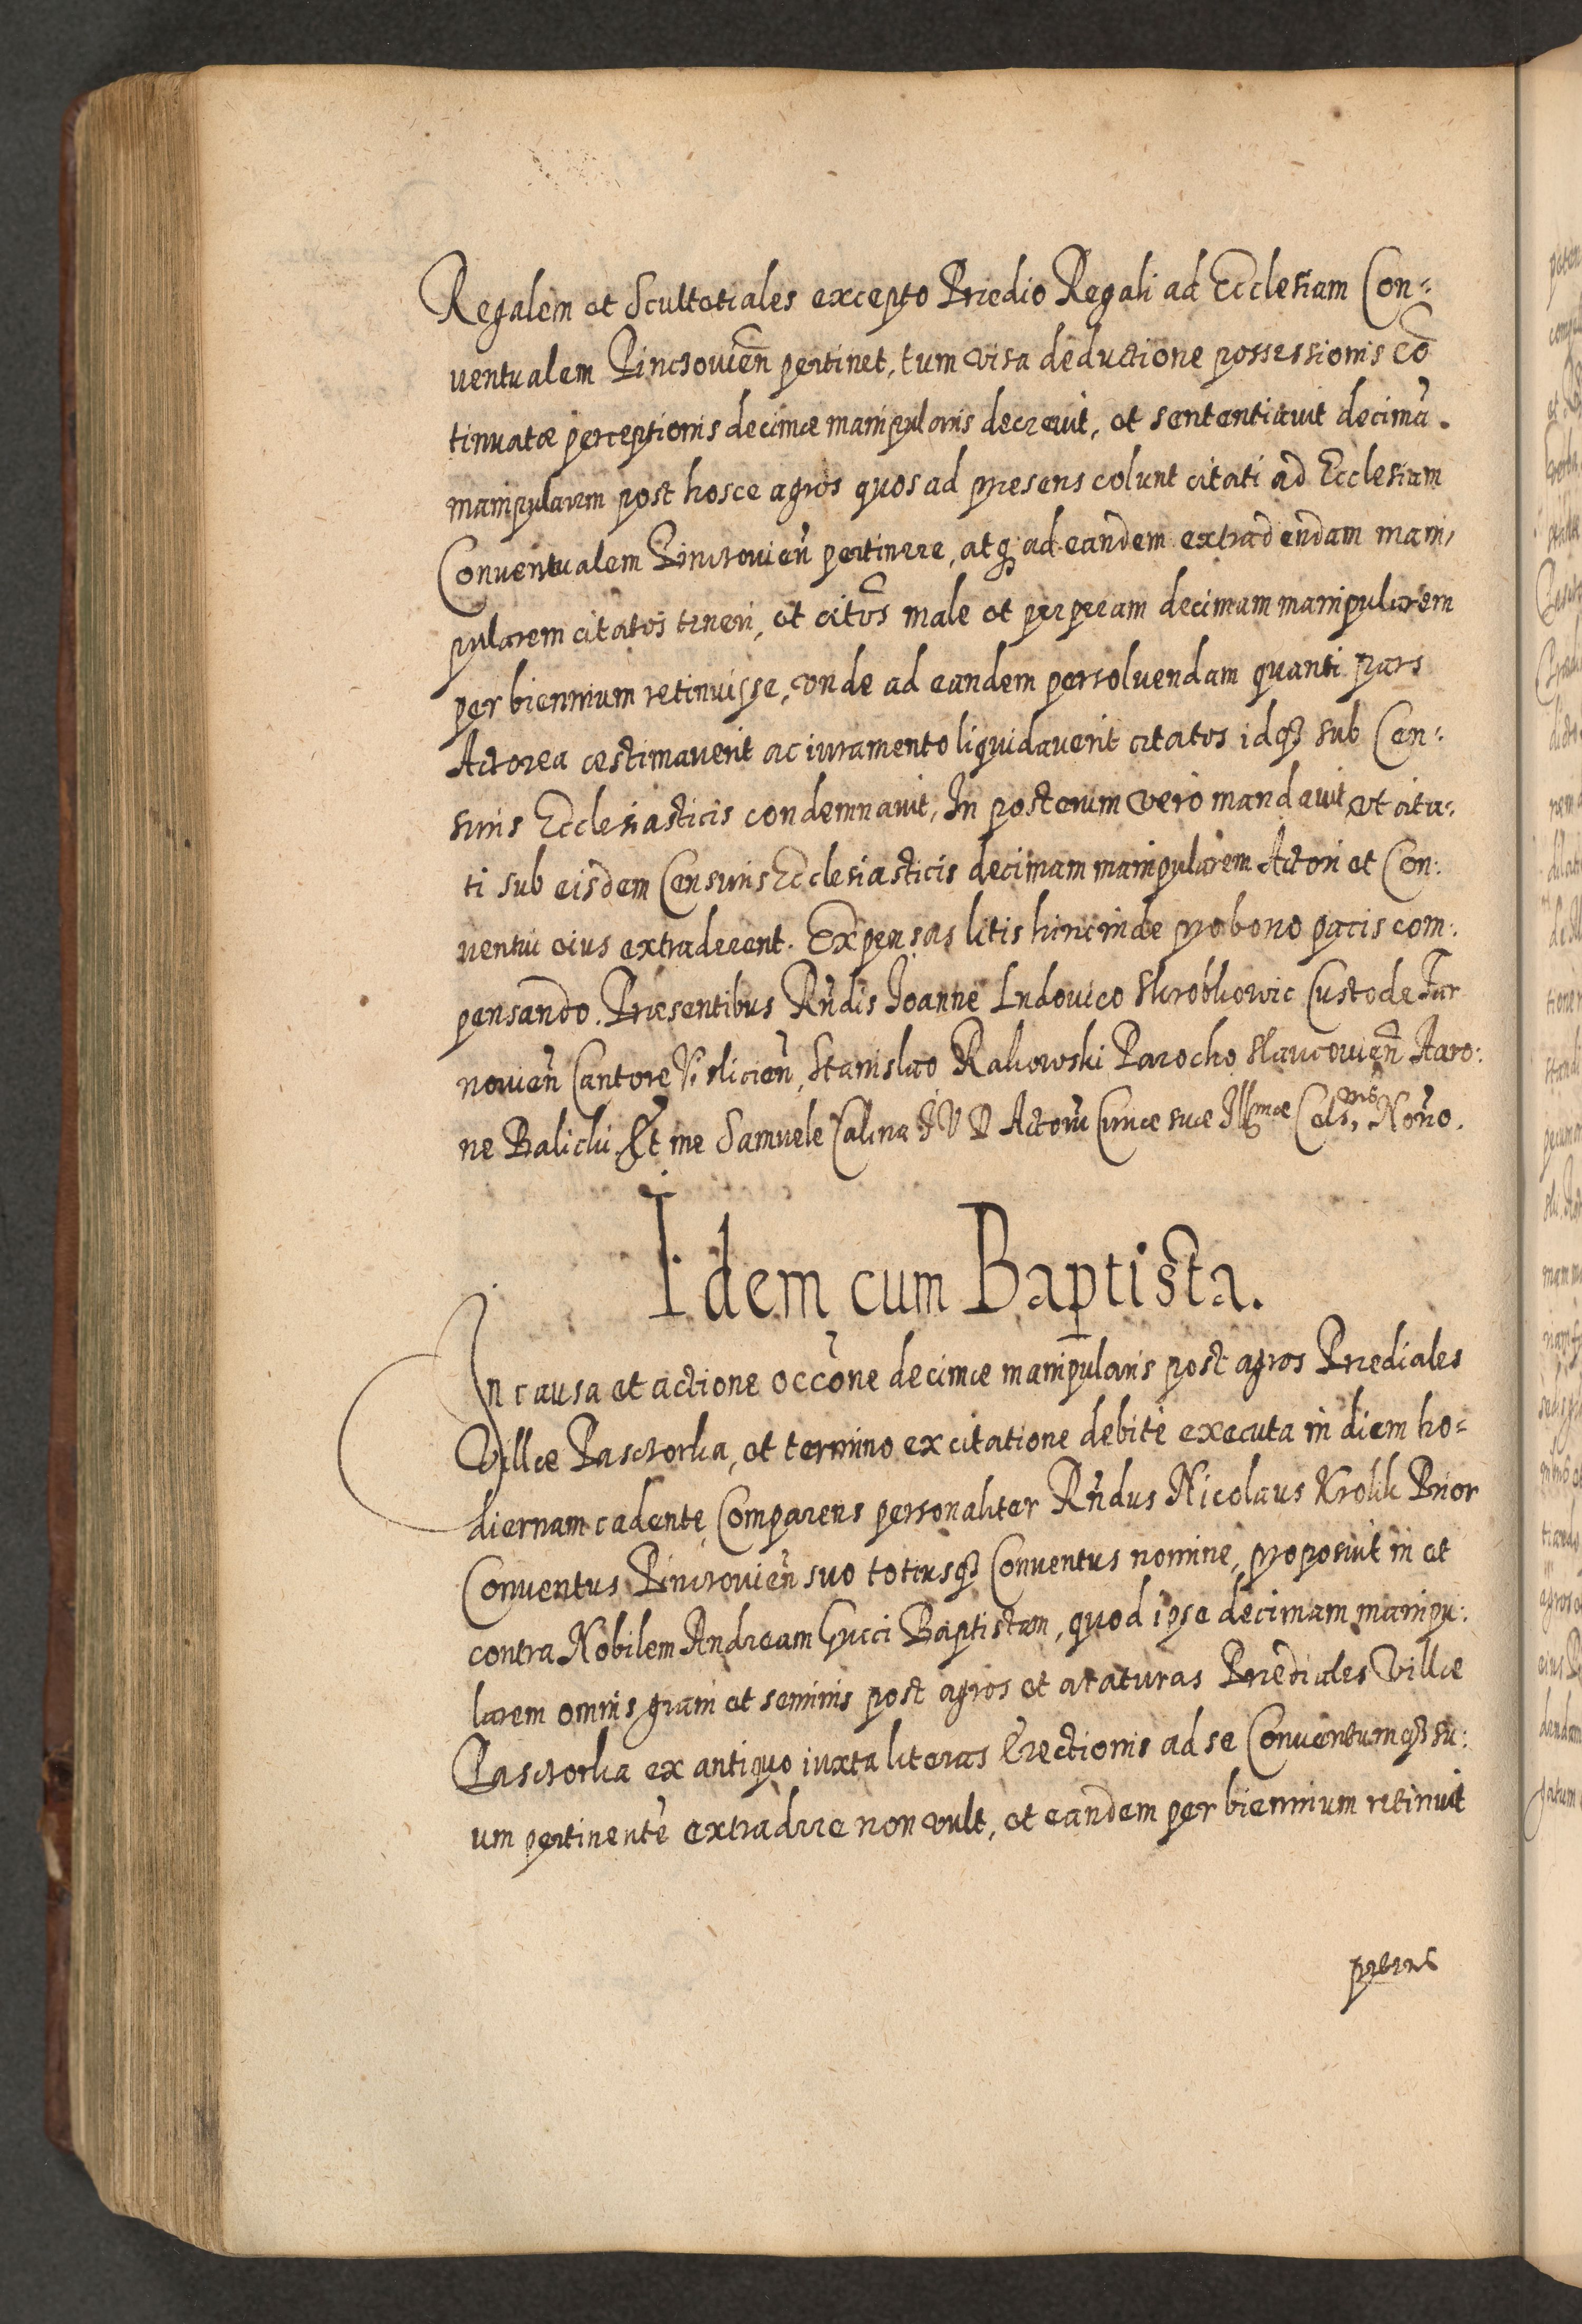 Regalem et Scultetiales excepto Prædio Regali ad Ecclesiam Con=
uentualem Pinczouień pertinet, tum visa deductione possessionis cō
tinuatæ perceptionis decimæ manipularis decreuit, et sententiauit decimā.
manipularem post hosce agros quos ad præsens colunt citati ad Ecclesiam
Conuentualem Pinczouień pertinere, atq ad eandem extradendam mani,
pularem citatos teneri, et citōs male et perperam decimam manipularem
per biennium retinuisse, vnde ad eandem persoluendam quanti pars
Actorea æstimauerit ac iuramento liquidauerit citatos idq sub Cen:
suris Ecclesiasticis condemnauit, In posterum vero mandauit vt cita:
ti sub eisdem Censuris Ecclesiasticis decimam manipularem Actori et Con:
uentui eius extraderent. Expensas litis hincinde pro bono pacis com:
pensando. Præsentibus Rńdis Joanne Ludouico Skrobkowic Custode Tar
nouień Cantore Vislicień, Stanislao Rakowski Parocho Slawcouień Aaro:
ne Balicki Et me Samuele Calina I V D Actorū Curiæ suæ Illmæ Cels. Noŕio.
Idem cum Baptista.
In causa et actione occōne decimæ manipularis post agros Prædiales
Villæ Pasturka, et termino ex citatione debite executa in diem ho=
diernam cadente, Comparens personaliter Rńdus Nicolaus Krolik Prior
Conuentus Pinczouień suo totiusq Conuentus nomine, proposuit in et
contra Nobilem Andream Gucci Baptistam, quod ipse decimam manipu:
larem omnis grani et seminis post agros et araturas Prædiales Villæ
Pasturka ex antiquo iuxta literas Erectionis ad se Conuentumq su:
um pertinentē extradere non vult, et eandem per biennium retinuit